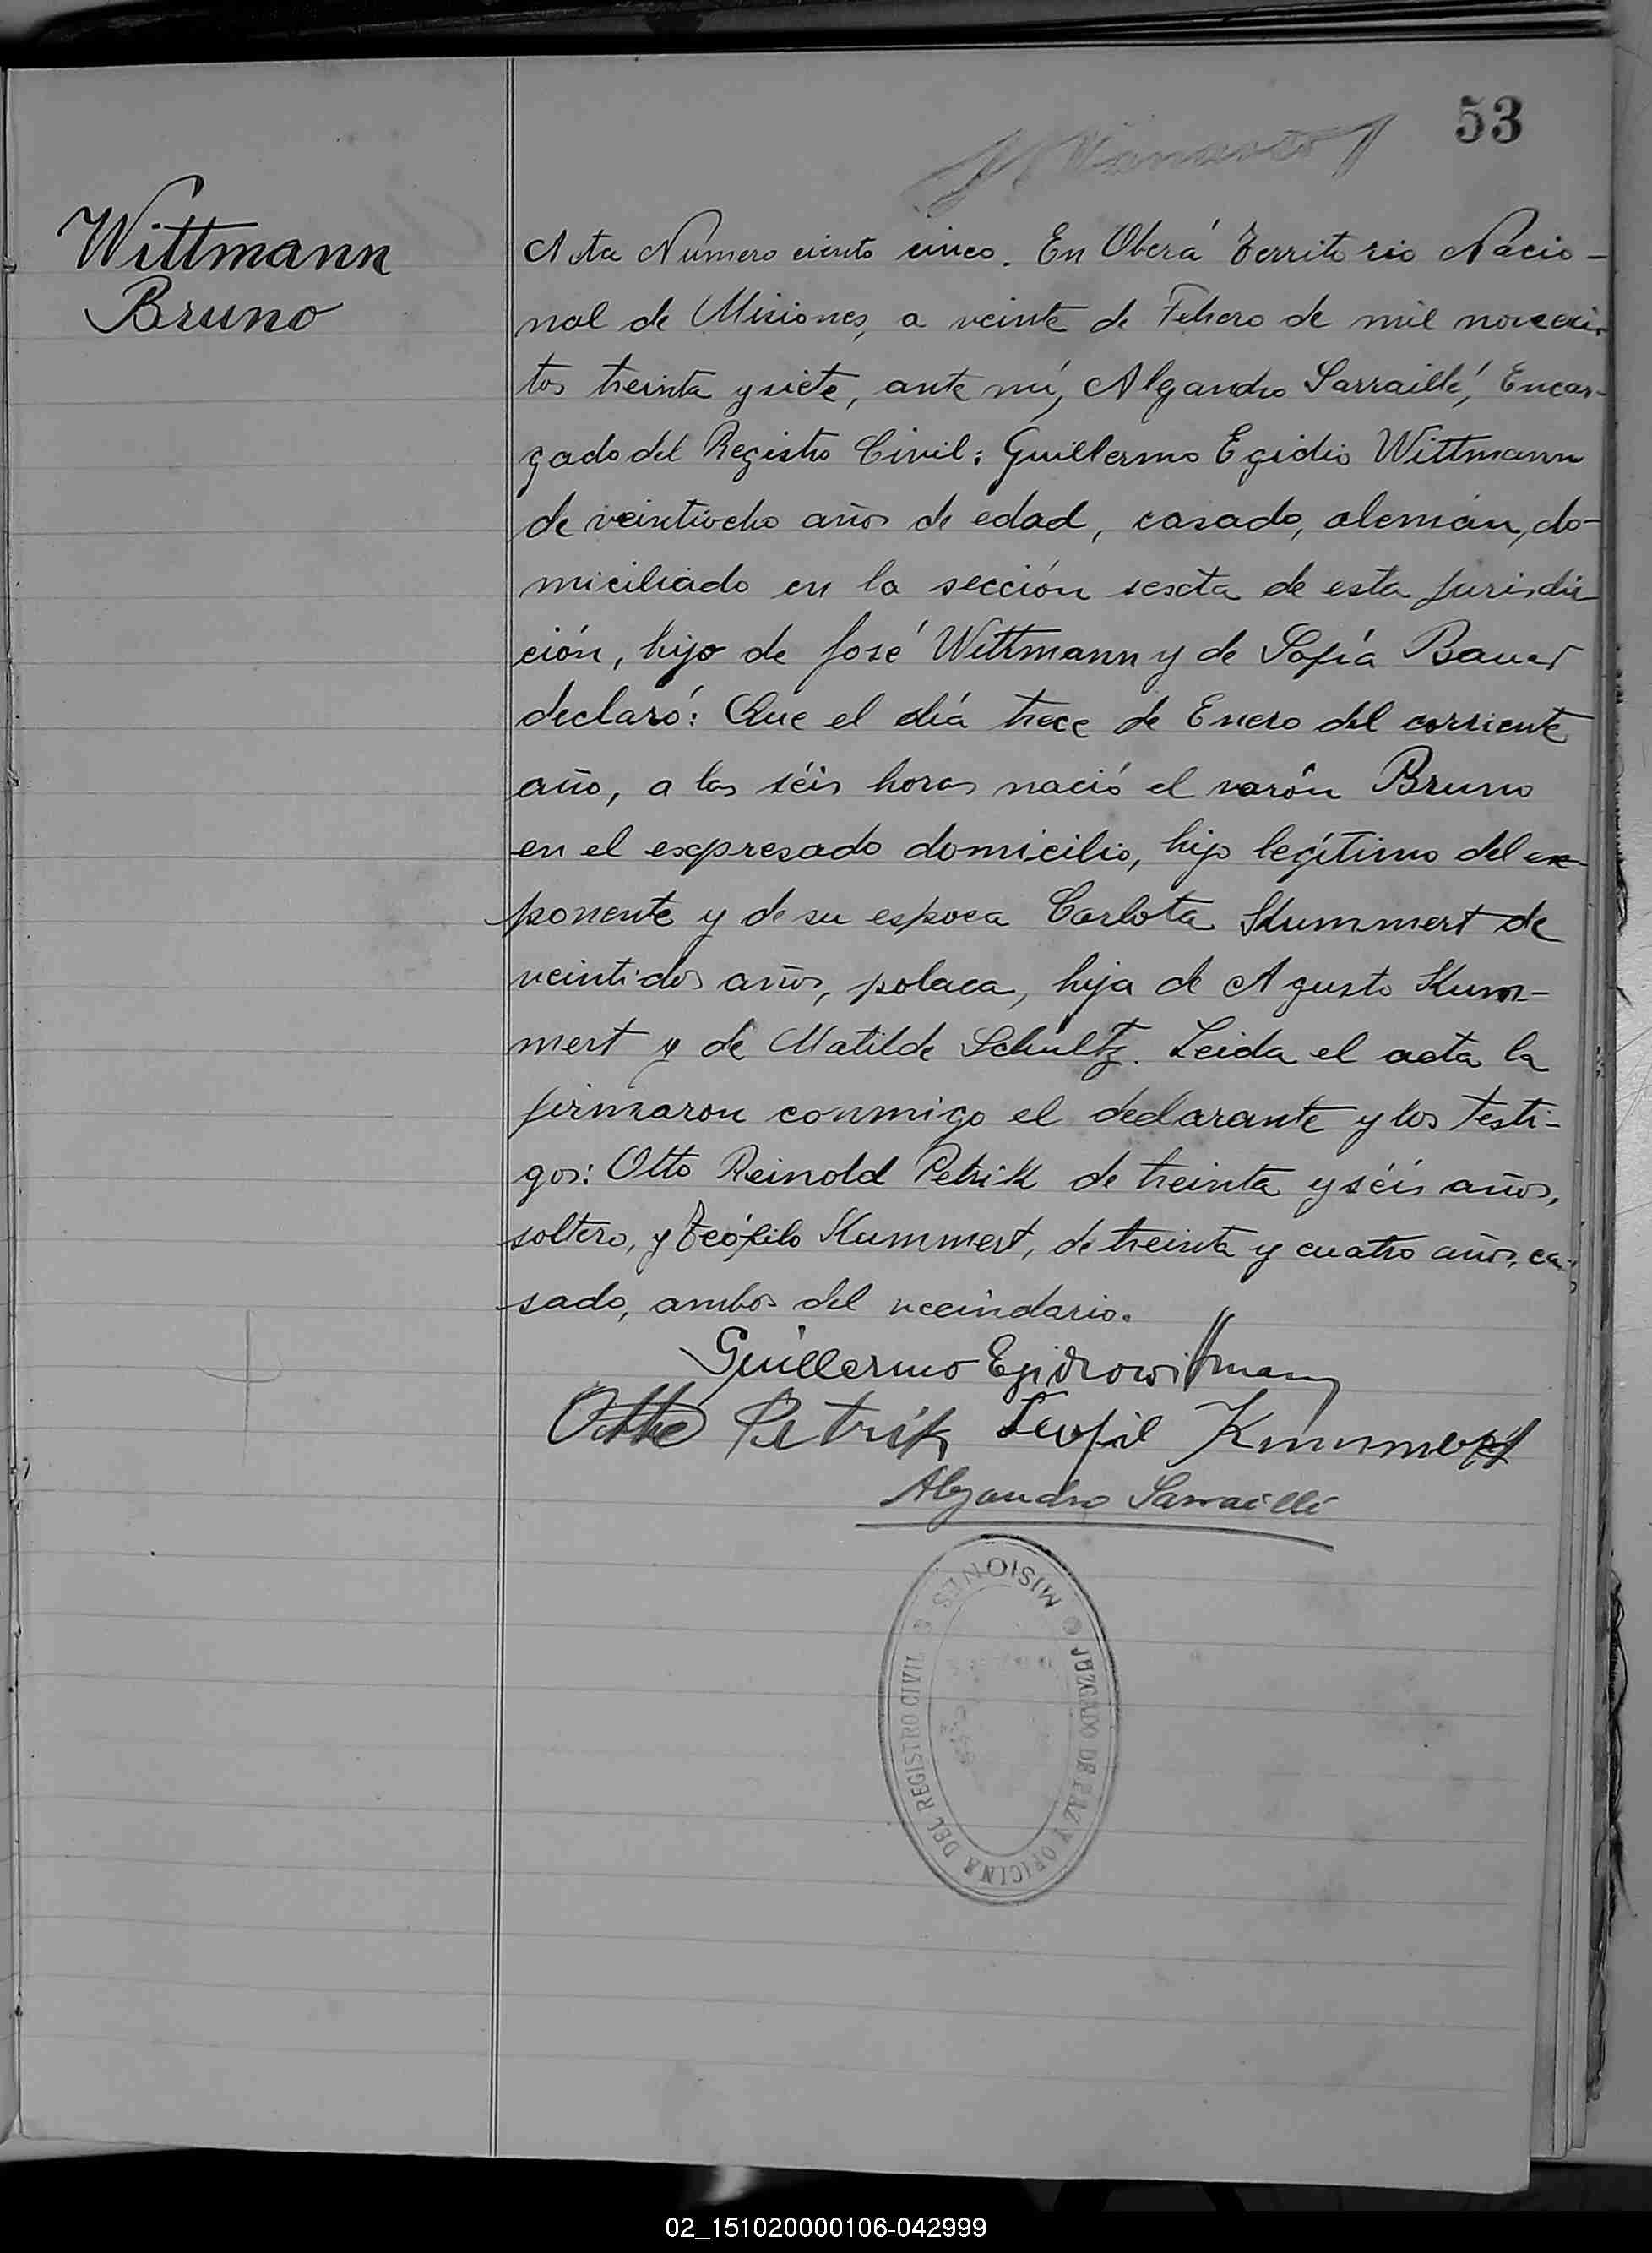 53
Wittmann
Bruno
Acta Número ciento cinco. En Oberá Territorio Nacio-
nal de Misiones, a veinte de Febrero de mil novecien
tos treinta y siete, ante mí, Alejandro Sarraillé, Encar-
gado del Registro Civil: Guillermo Egidio Wittmann
de veintiocho años de edad, casado, alemán, do-
miciliado en la sección sexta de esta jurisdic
ción, hijo de José Wittmann y de Sofía Bauer
declaró: Que el día trece de Enero del corriente
año, a las séis horas nació el varón Bruno
en el expresado domicilio, hijo legítimo del ex-
ponente y de su espoca Carlota Kummert de
veintidos años, polaca, hija de Agusto Kum-
mert y de Matilde Schultz. Leida el acta la
firmaron conmigo el declarante y los testi-
gos: Otto Reinold Petrik de treinta y séis años,
soltero, y Teófilo Kummert, de treinta y cuatro años, ca-
sado, ambos del vecindario.
Guillermo Egidio Wittmann
Otto Petrik Teofil Kummert
Alejandro Sarraillé
MISIONES
JUZGADO DE PAZ Y OFICINA DEL REGISTRO CIVIL
02_151020000106-042999